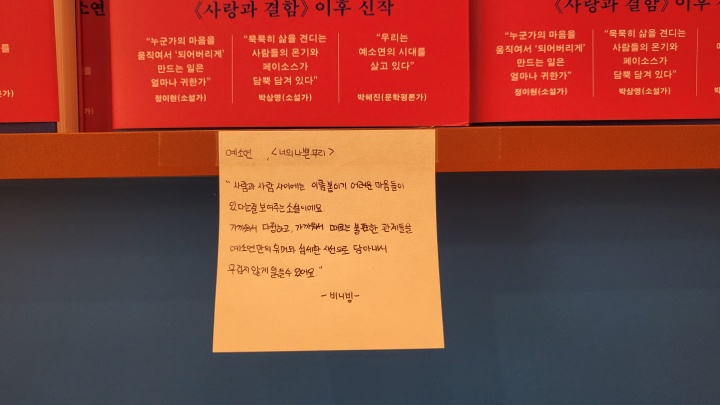 소연
《사랑과 결함》 이후 신작
"누군가의 마음을
움직여서 '되어버리게'
만드는 일은
얼마나 귀한가"
정이현(소설가)
"묵묵히 삶을 견디는
사람들의 온기와
페이소스가
담뿍 담겨 있다"
박상영(소설가)
"우리는
예소연의 시대를
살고 있다"
박혜진(문학평론가)
《사랑과 결함》 이후 신작
"누군가의 마음을
움직여서 '되어버리게'
만드는 일은
얼마나 귀한가"
정이현(소설가)
"묵묵히 삶을 견디는
사람들의 온기와
페이소스가
담뿍 담겨 있다"
박상영(소설가)
예소연, <너의 나쁜 무리>
"사람과 사람 사이에는 이름 붙이기 어려운 마음들이
있다는걸 보여주는 소설이에요
가까워서 다정하고, 가까워서 때로는 불편한 관계들을
예소연만의 유머와 섬세한 시선으로 담아내서
무겁지 않게 읽을수 있어요"
- 비니빙 -